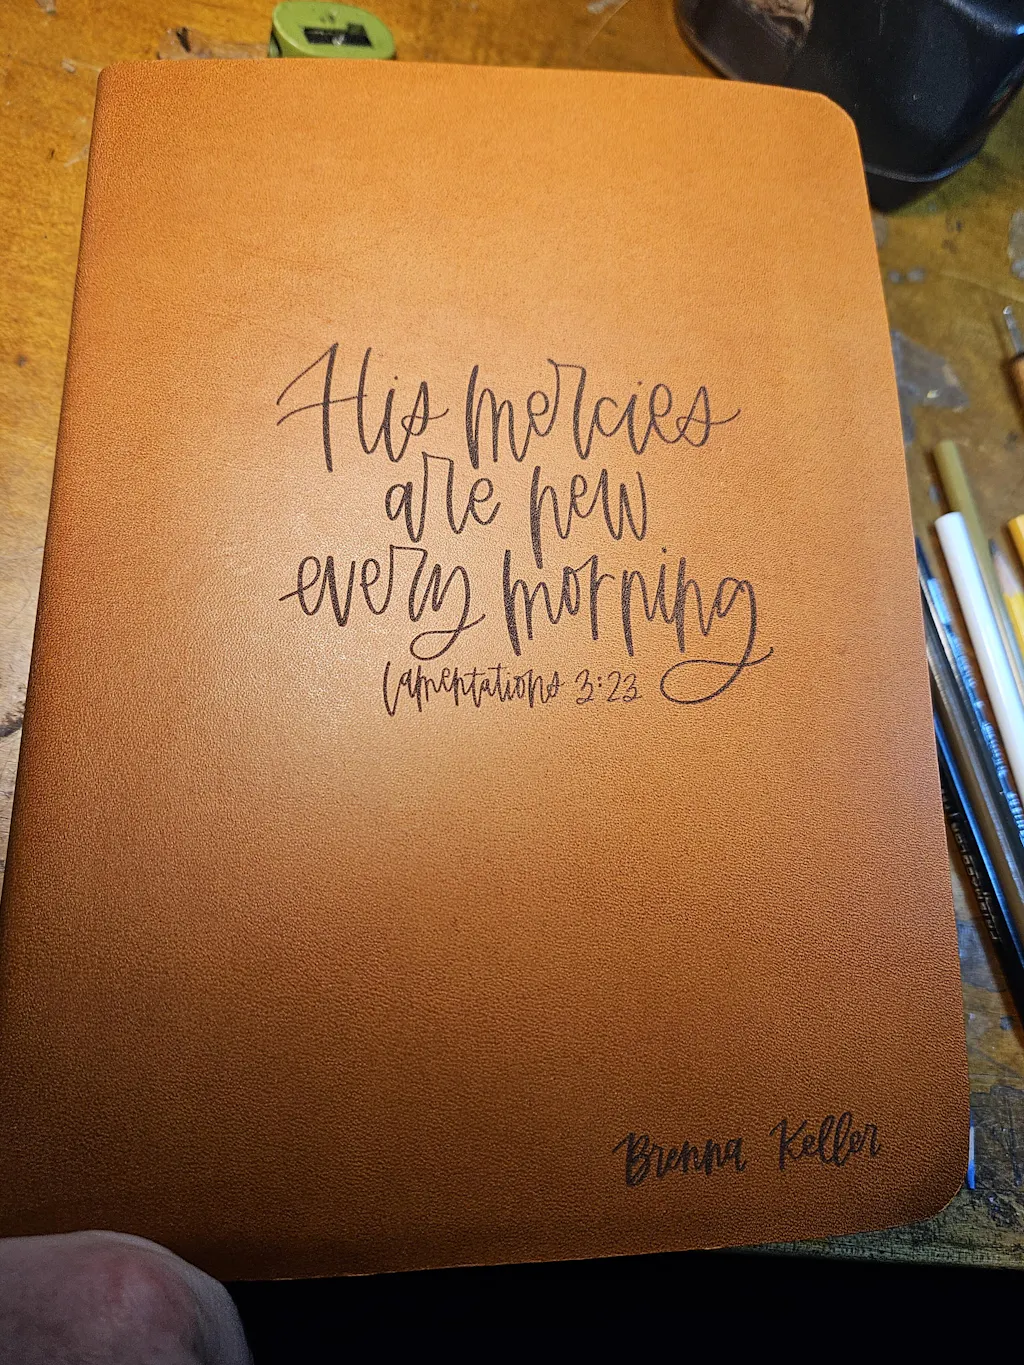 His mercies
are new
every morning
Lamentations 3:23
Brenna Keller